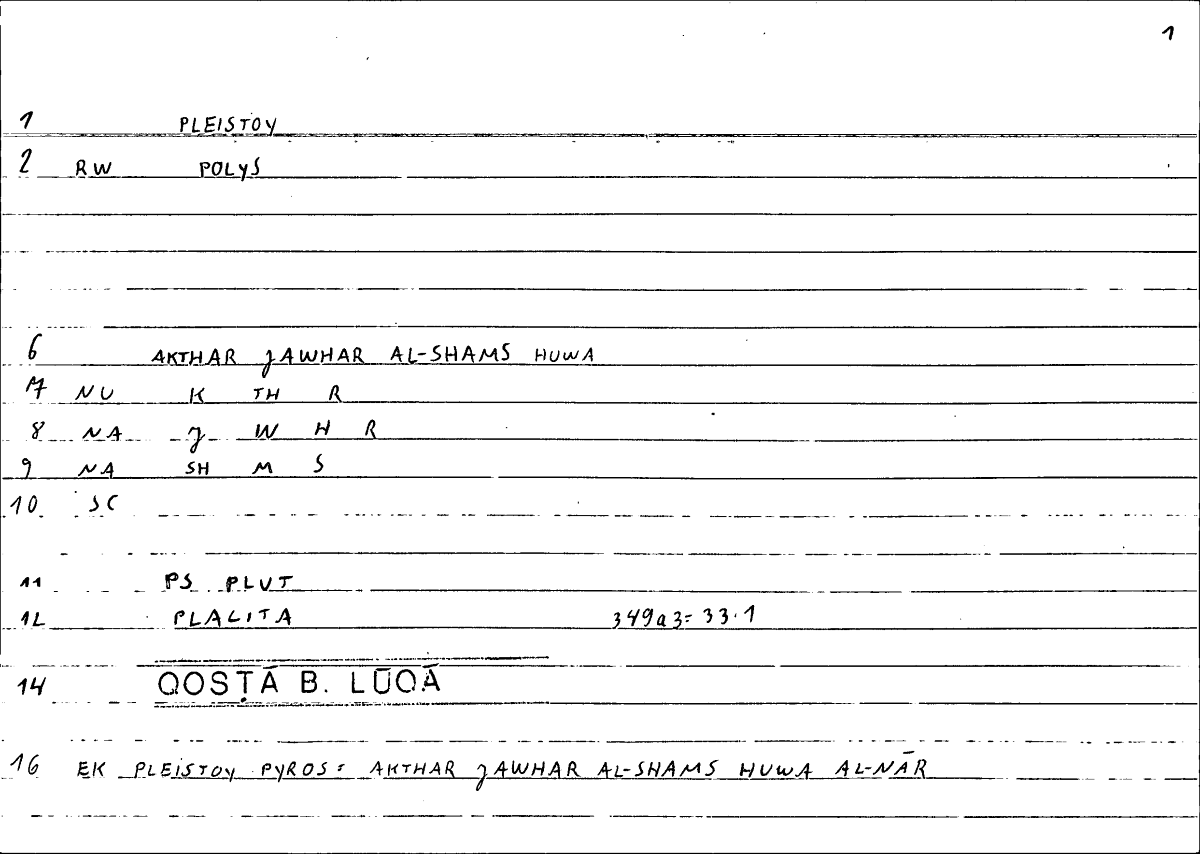 1
1 PLEISTOY
2 RW POLYS
6 AKTHAR JAWHAR AL-SHAMS HUWA
7 NU K TH R
8 NA J W H R
9 NA SH M S
10 SC
11 PS PLUT
12 PLACITA 349a3=33.1
14 QOSṬĀ B. LŪQĀ
16 EK PLEISTOY PYROS = AKTHAR JAWHAR AL-SHAMS HUWA AL-NĀR